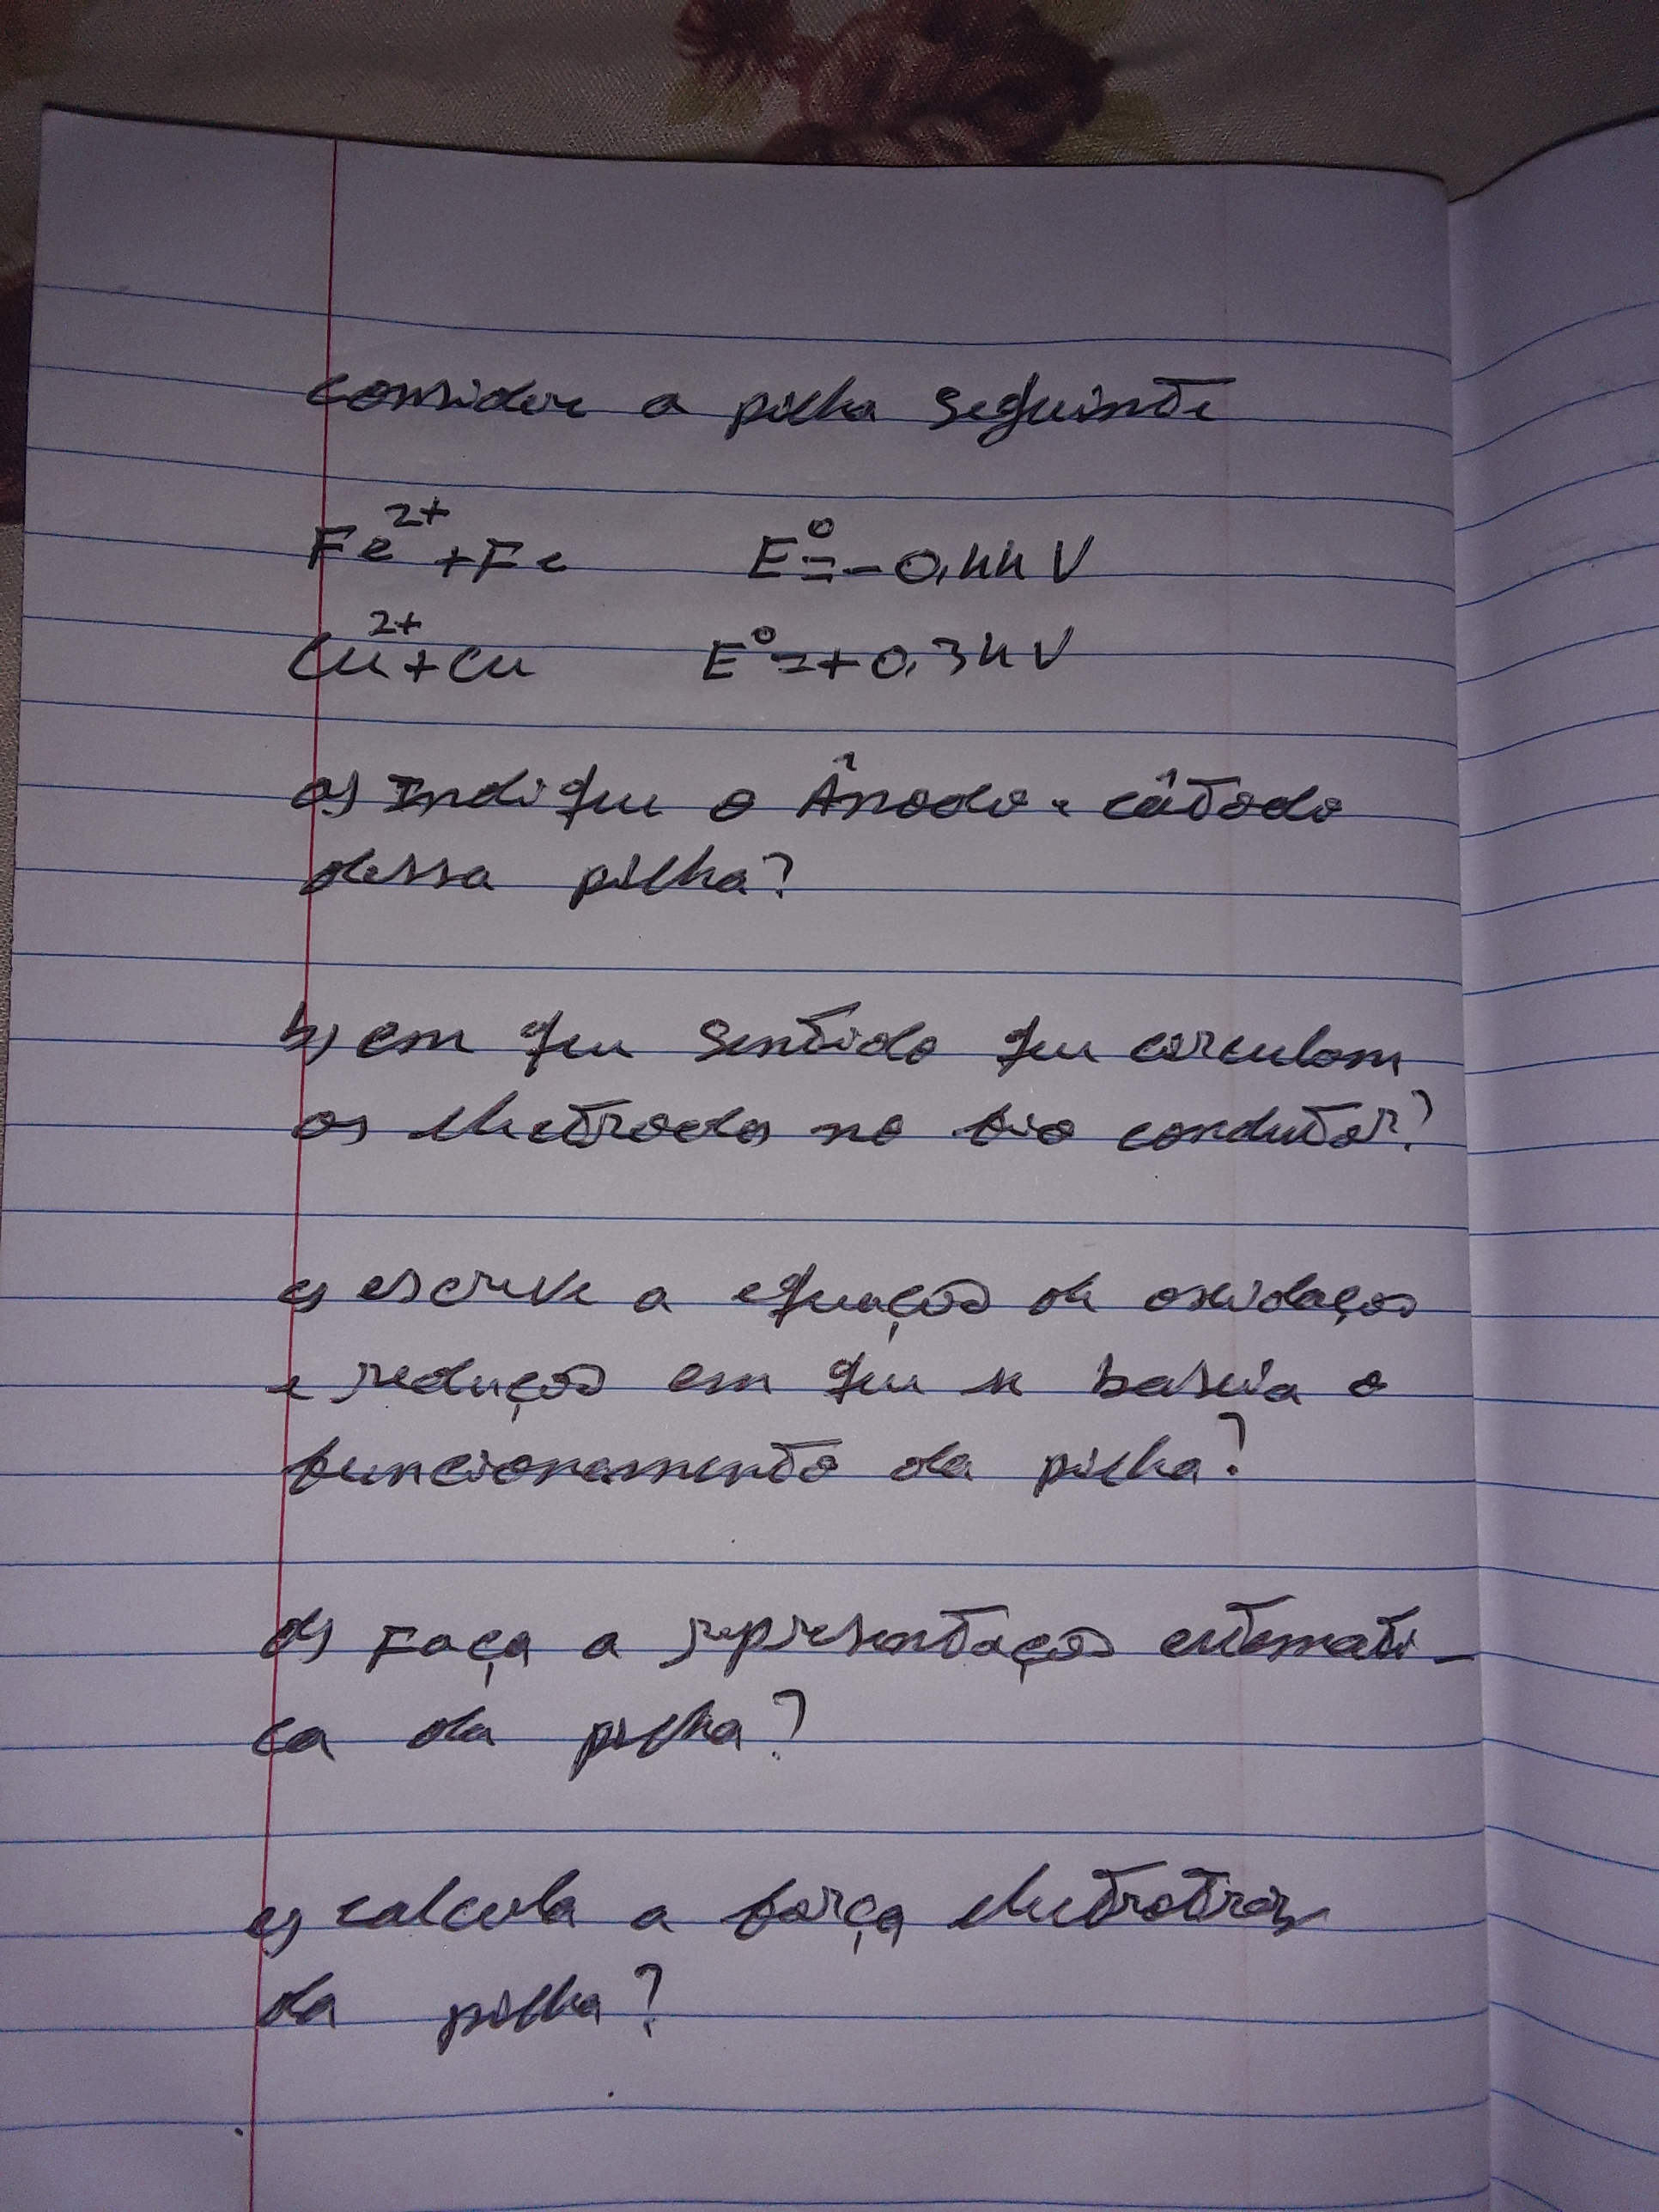 considere a pilha seguinte
Fe²⁺+Fe E⁰=-0,44V
Cu²⁺+Cu E⁰=+0,34V
a) Indique o Ânodo e câtodo
dessa pilha?
b) em que sentido que circulam
os electrodos no fio condutor?
c) escreve a equação de oxidação
e redução em que se baseia o
funcionamento da pilha?
d) Faça a representação estemati-
ca da pilha?
e) calcula a força electrotriz
da pilha?